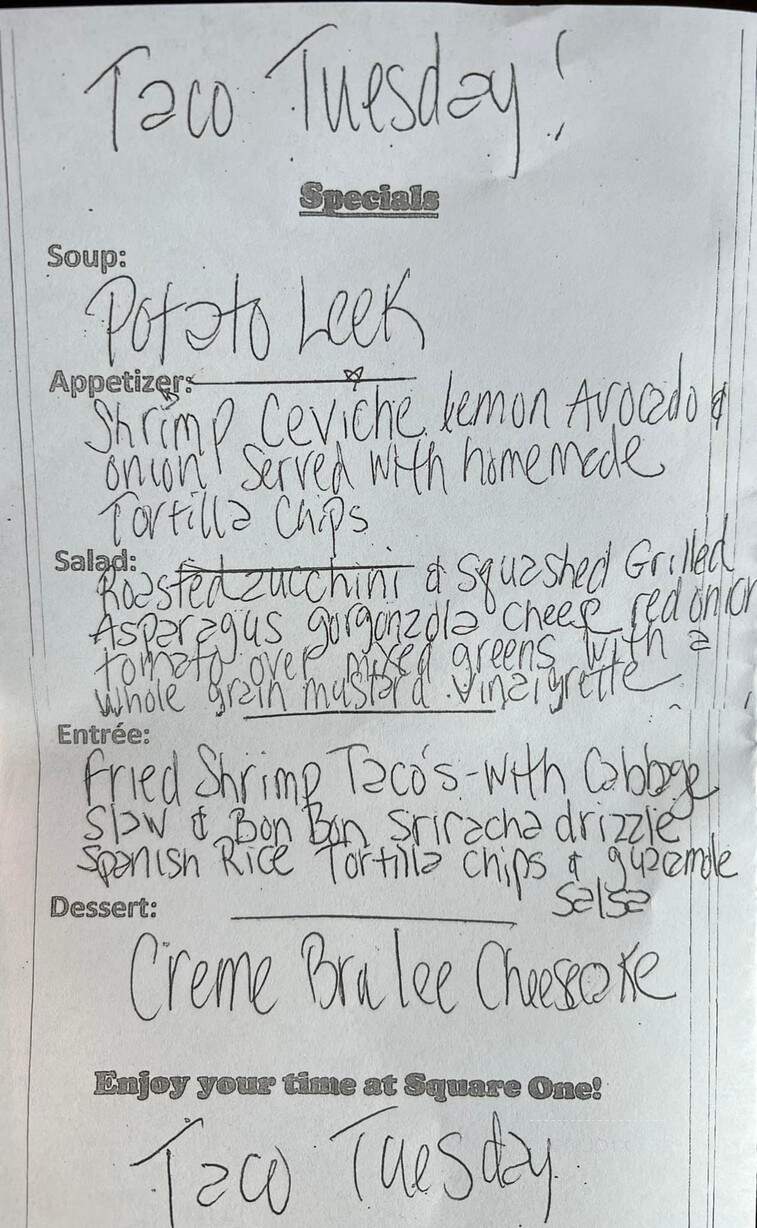 Taco Tuesday!
Specials
Soup:
Potato Leek
Appetizer:
Shrimp Ceviche Lemon Avocado &
onion served with homemade
Tortilla Chips
Salad:
Roasted zucchini & Squashed Grilled
Asparagus gorgonzola cheese red onion
tomato over mixed greens with a
whole grain mustard vinaigrette
Entrée:
Fried Shrimp Taco's - with Cabbage
Slaw & Bon Bon Sriracha drizzle
Spanish Rice Tortilla chips & guacamole
Salsa
Dessert:
Creme Brulee Cheesecake
Enjoy your time at Square One!
Taco Tuesday